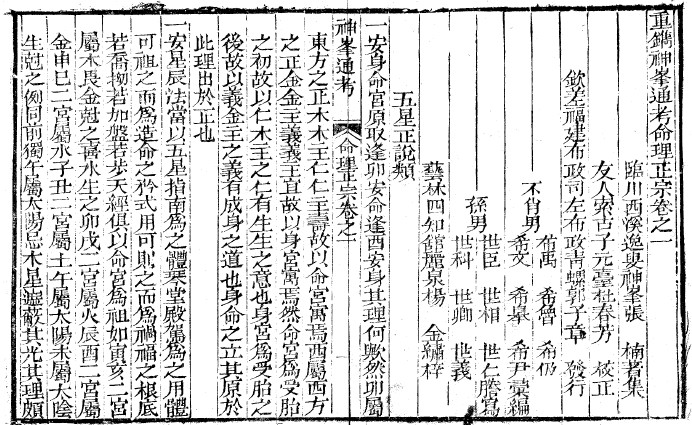 重鐫神峯通考命理正宗卷之一
臨川西溪逸叟神峯張 楠著集
友人索古子元臺杜春芳 校正
欽差福建布政司左布政青螺郭子章 發行
不肖男
希禹 希曾 希伋
希文 希皋 希尹彙編
孫男
世臣 世相 世仁謄寫
世科 世卿 世義
藝林四知館麗泉楊 金繡梓
五星正說類
一安身命宮原取逢卯安命逢酉安身其理何歟然卯屬
神峯通考 命理正宗卷之一
東方之正木木主仁仁主壽故以命宮寓焉酉屬西方
之正金金主義義主直故以身宮寓焉然命宮為受胎
之初故以仁木主之仁有生生之意也身宮為受胎之
後故以義金主之義有成身之道也身命之立其原於
此理出於正也
一安星辰法當以五星指南為之體琴堂殿駕為之用體
可祖之而為造命之矜式用可則之而為禍福之根底
若喬拗若加盤若步天經俱以命宮為祖如寅亥二宮
屬木長金剋之喜水生之卯戌二宮屬火辰酉二宮屬
金申巳二宮屬水子丑二宮屬土午屬大陽未屬大陰
生剋之例同前獨午屬大陽忌木星遮蔽其光其理頗